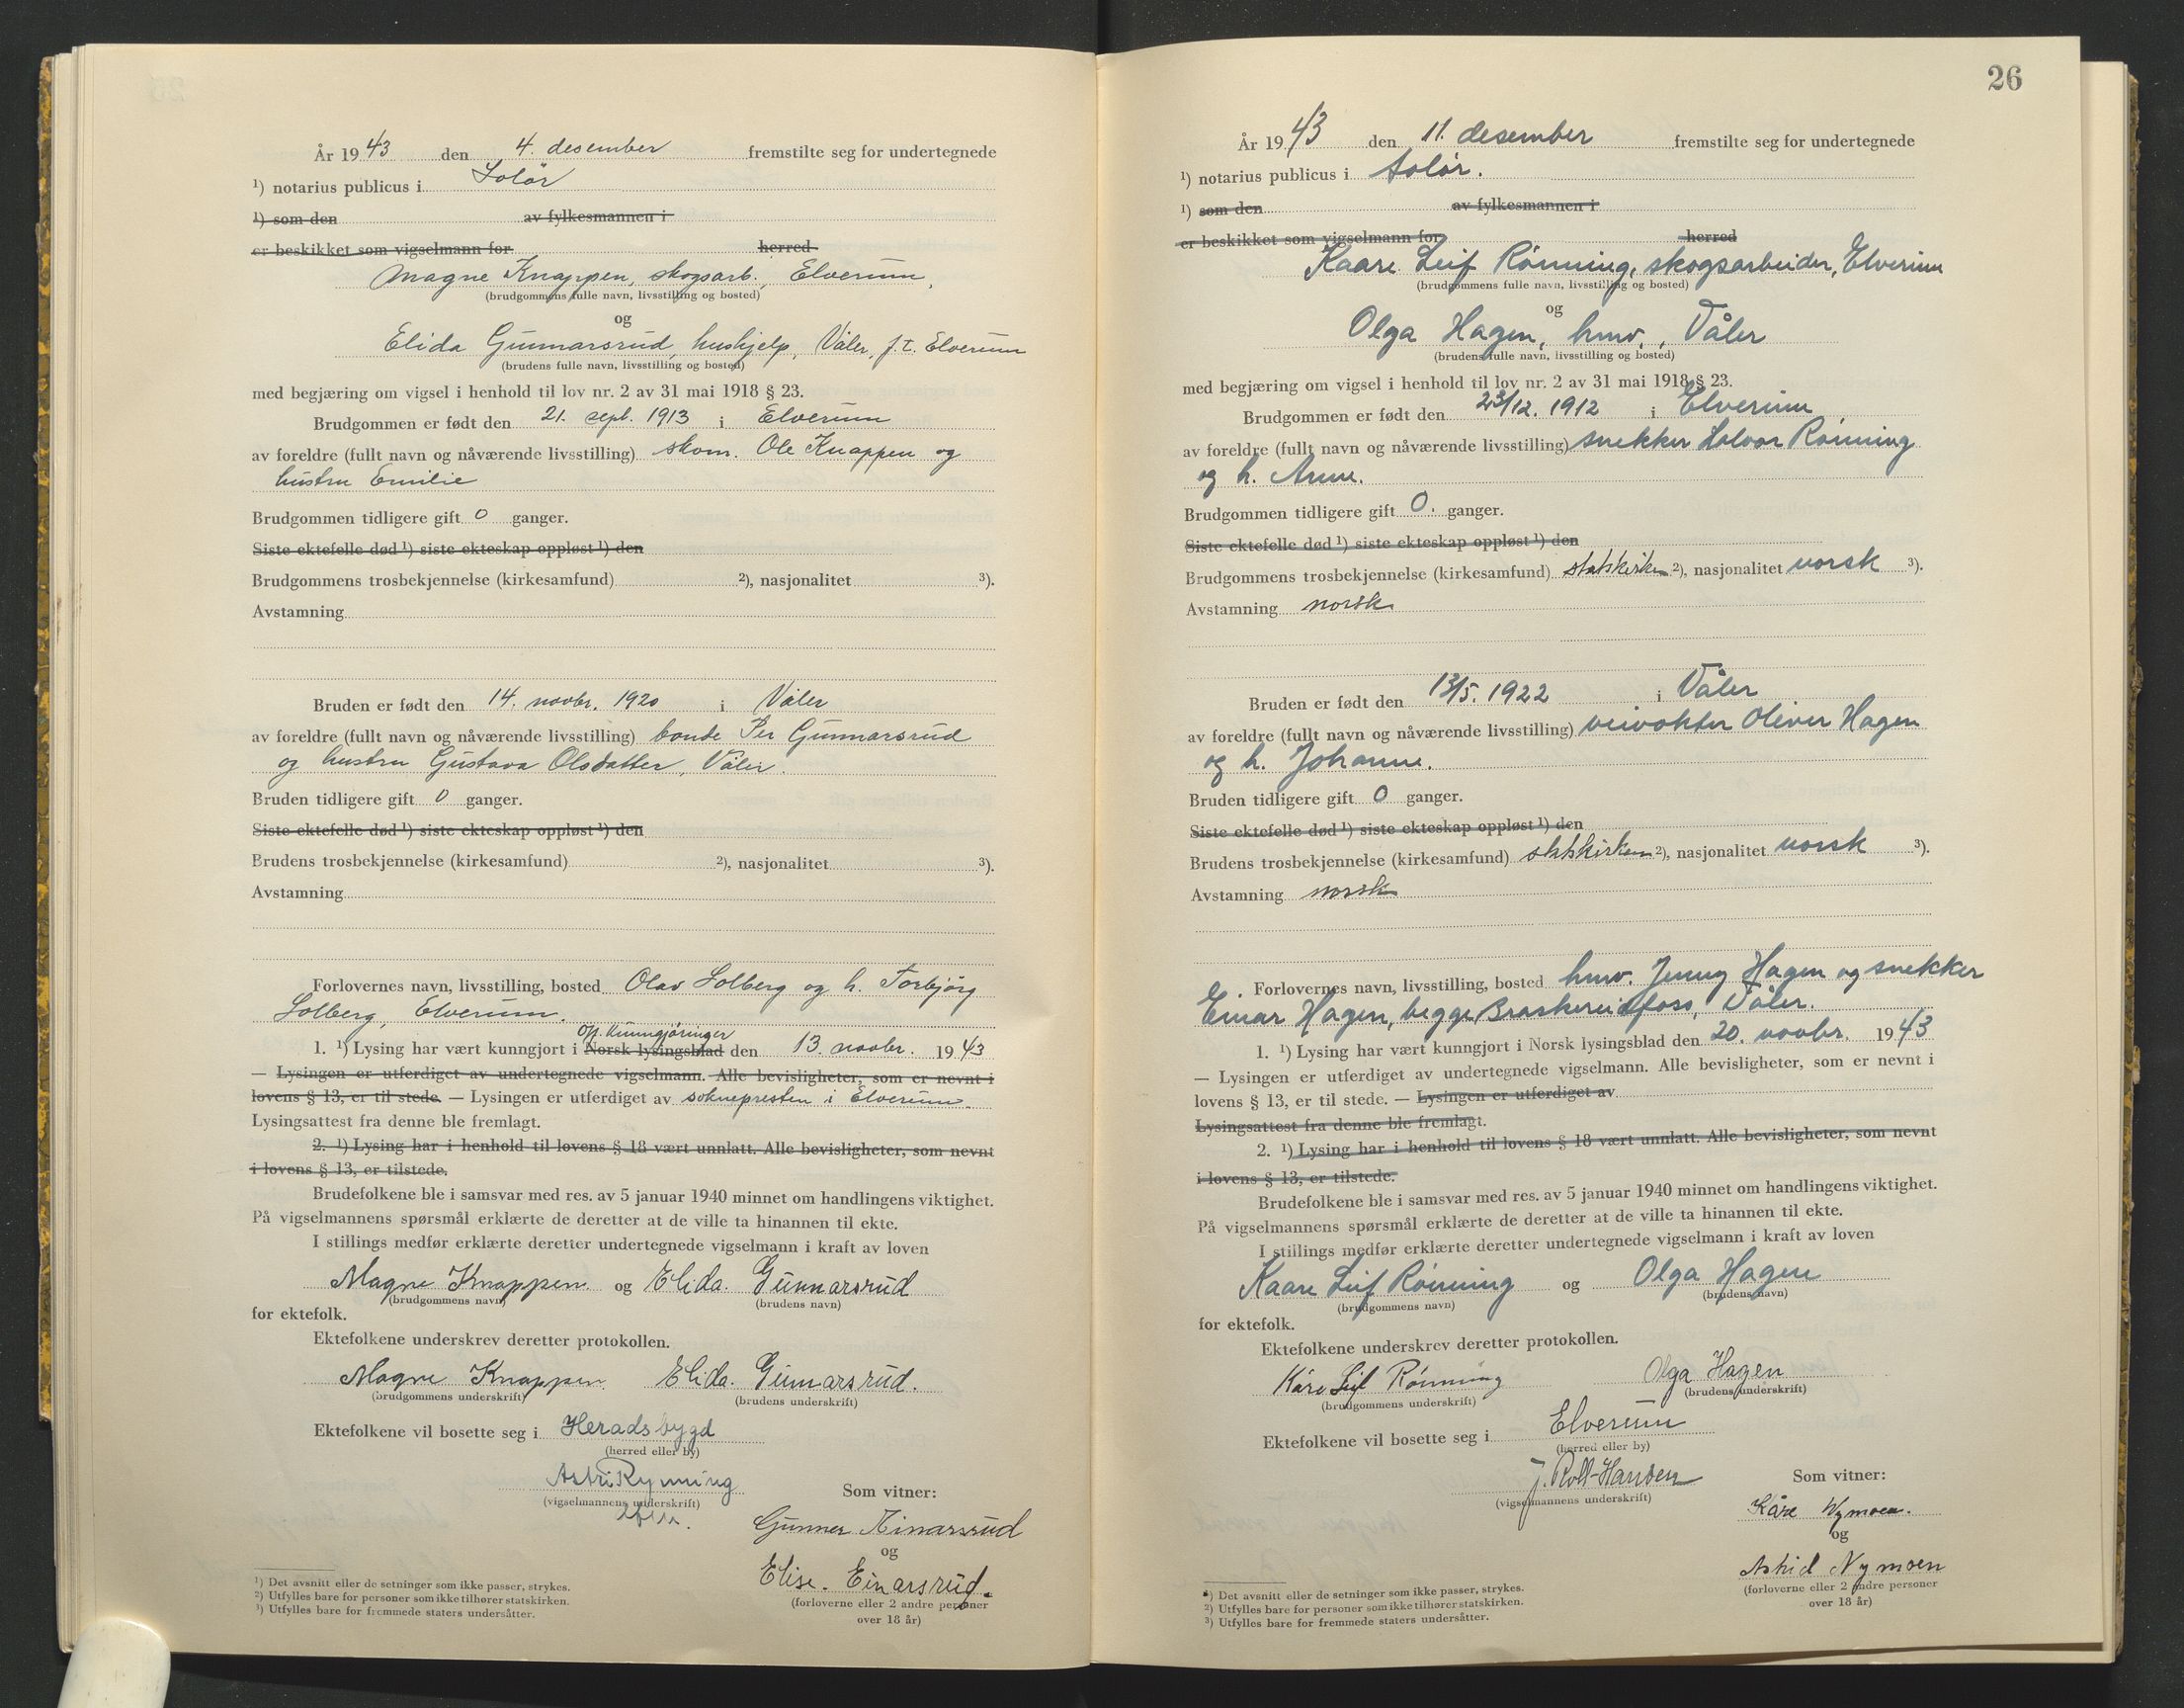 År 1943 den 4. desember fremstilte seg for undertegnede
¹) notarius publicus i Solør
¹) som den av fylkesmannen i
er beskikket som vigselmann for herred
Magne Knappen, skogsarb., Elverum,
(brudgommens fulle navn, livsstilling og bosted)
og
Elida Gunnarsrud, hushjelp, Våler, f.t. Elverum
(brudens fulle navn, livsstilling og bosted)
med begjæring om vigsel i henhold til lov nr. 2 av 31 mai 1918 § 23.
Brudgommen er født den 21. sept. 1913 i Elverum
av foreldre (fullt navn og nåværende livsstilling) skom. Ole Knappen og
hustru Emilie
Brudgommen tidligere gift 0 ganger.
Siste ektefelle død ¹) siste ekteskap oppløst ¹) den
Brudgommens trosbekjennelse (kirkesamfund) ²), nasjonalitet ³).
Avstamning
Bruden er født den 14. novbr. 1920 i Våler
av foreldre (fullt navn og nåværende livsstilling) bonde Per Gunnarsrud
og hustru Gustava Olsdatter, Våler.
Bruden tidligere gift 0 ganger.
Siste ektefelle død ¹) siste ekteskap oppløst ¹) den
Brudens trosbekjennelse (kirkesamfund) ²), nasjonalitet ³).
Avstamning
Forlovernes navn, livsstilling, bosted Olav Solberg og h. Torbjørg
Solberg, Elverum.
off. kunngjøringer
1. ¹) Lysing har vært kunngjort i Norsk lysingsblad den 13. novbr. 1943
— Lysingen er utferdiget av undertegnede vigselmann. Alle bevisligheter, som er nevnt i
lovens § 13, er til stede. — Lysingen er utferdiget av soknepresten i Elverum.
Lysingsattest fra denne ble fremlagt.
2. ¹) Lysing har i henhold til lovens § 18 vært unnlatt. Alle bevisligheter, som nevnt
i lovens § 13, er tilstede.
Brudefolkene ble i samsvar med res. av 5 januar 1940 minnet om handlingens viktighet.
På vigselmannens spørsmål erklærte de deretter at de ville ta hinannen til ekte.
I stillings medfør erklærte deretter undertegnede vigselmann i kraft av loven
Magne Knappen og Elida Gunnarsrud
(brudgommens navn) (brudens navn)
for ektefolk.
Ektefolkene underskrev deretter protokollen.
Magne Knappen Elida Gunnarsrud.
(brudgommens underskrift) (brudens underskrift)
Ektefolkene vil bosette seg i Heradsbygd
(herred eller by)
Astri Rynning
(vigselmannens underskrift)
Som vitner:
Gunner Einarsrud
og
Elise Einarsrud.
(forloverne eller 2 andre personer
over 18 år)
¹) Det avsnitt eller de setninger som ikke passer, strykes.
²) Utfylles bare for personer som ikke tilhører statskirken.
³) Utfylles bare for fremmede staters undersåtter.
26
År 1943 den 11. desember fremstilte seg for undertegnede
¹) notarius publicus i Solør.
¹) som den av fylkesmannen i
er beskikket som vigselmann for herred
Kaare Leif Rønning, skogsarbeider, Elverum
(brudgommens fulle navn, livsstilling og bosted)
og
Olga Hagen, hmv., Våler
(brudens fulle navn, livsstilling og bosted)
med begjæring om vigsel i henhold til lov nr. 2 av 31 mai 1918 § 23.
Brudgommen er født den 23/12. 1912 i Elverum
av foreldre (fullt navn og nåværende livsstilling) snekker Halvor Rønning
og h. Anne.
Brudgommen tidligere gift 0. ganger.
Siste ektefelle død ¹) siste ekteskap oppløst ¹) den
Brudgommens trosbekjennelse (kirkesamfund) statskirken ²), nasjonalitet norsk ³).
Avstamning norsk
Bruden er født den 13/5. 1922 i Våler
av foreldre (fullt navn og nåværende livsstilling) veivokter Oliver Hagen
og h. Johanne.
Bruden tidligere gift 0 ganger.
Siste ektefelle død ¹) siste ekteskap oppløst ¹) den
Brudens trosbekjennelse (kirkesamfund) statskirken ²), nasjonalitet norsk ³).
Avstamning norsk
Forlovernes navn, livsstilling, bosted hmv. Jenny Hagen og snekker
Einar Hagen, begge Braskereidfoss, Våler.
1. ¹) Lysing har vært kunngjort i Norsk lysingsblad den 20. novbr. 1943
— Lysingen er utferdiget av undertegnede vigselmann. Alle bevisligheter, som er nevnt i
lovens § 13, er til stede. — Lysingen er utferdiget av
Lysingsattest fra denne ble fremlagt.
2. ¹) Lysing har i henhold til lovens § 18 vært unnlatt. Alle bevisligheter, som nevnt
i lovens § 13, er tilstede.
Brudefolkene ble i samsvar med res. av 5 januar 1940 minnet om handlingens viktighet.
På vigselmannens spørsmål erklærte de deretter at de ville ta hinannen til ekte.
I stillings medfør erklærte deretter undertegnede vigselmann i kraft av loven
Kaare Leif Rønning og Olga Hagen
(brudgommens navn) (brudens navn)
for ektefolk.
Ektefolkene underskrev deretter protokollen.
Kåre Leif Rønning Olga Hagen
(brudgommens underskrift) (brudens underskrift)
Ektefolkene vil bosette seg i Elverum
(herred eller by)
J. Roll-Hansen
(vigselmannens underskrift)
Som vitner:
Kåre Nymoen.
og
Astrid Nymoen
(forloverne eller 2 andre personer
over 18 år)
¹) Det avsnitt eller de setninger som ikke passer, strykes.
²) Utfylles bare for personer som ikke tilhører statskirken.
³) Utfylles bare for fremmede staters undersåtter.